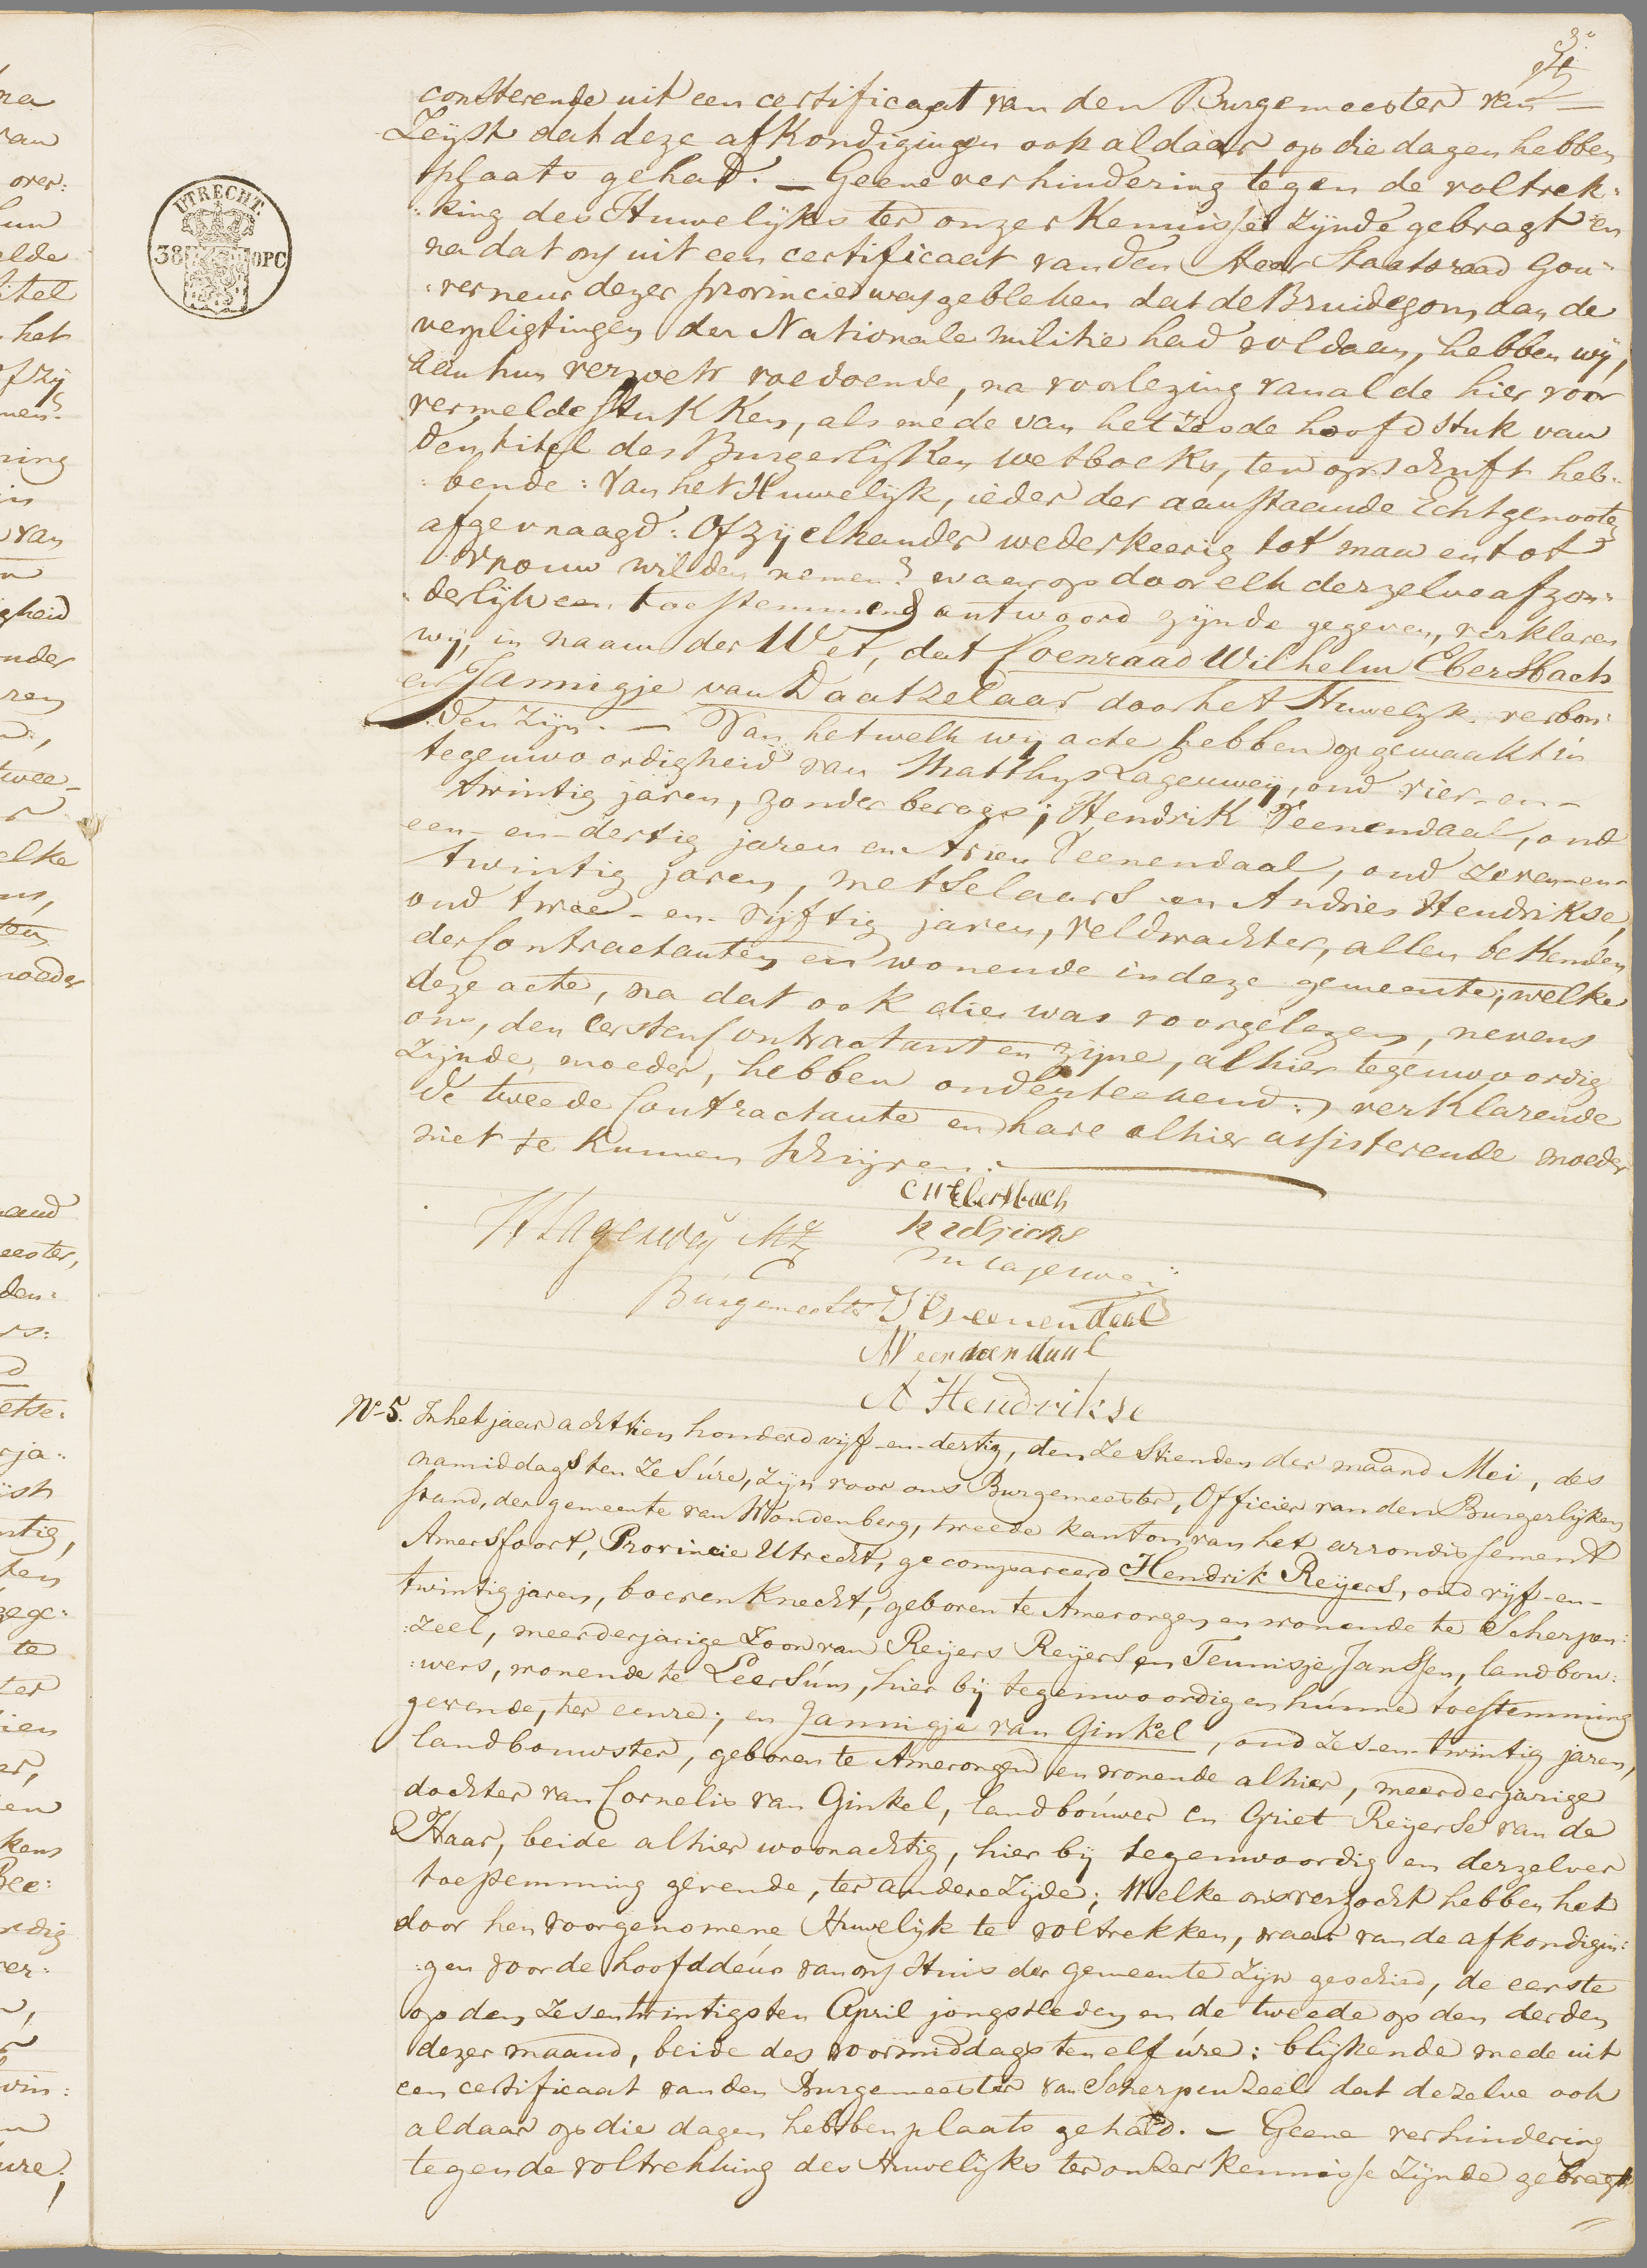 3e
consterende uit een certificaat van den Burgemeester van —
Zeijst dat deze afkondigingen ook aldaar op die dagen hebben
plaats gehad. — Geene verhindering tegen de voltrek:
:king des Huwelijks ter onzer kennisse zijnde gebragt en
na dat ons uit een certificaat van den Heer Staatsraad Gou:
:verneur dezer provincie was gebleken dat de Bruidegom aan de
verpligtingen der Nationale militie had voldaan, hebben wij,
aan hun verzoek voldoende, na voorlezing van al de hier voor
vermelde stukken, als mede van het zesde hoofdstuk van
den titel des Burgerlijken wetboeks, ten opschrift heb:
:bende: Van het Huwelijk, ieder der aanstaande Echtgenooten
afgevraagd: Of zij elkander wederkeerig tot man en tot
vrouw wilden nemen? waarop door elk derzelve afzon:
:derlijk een toestemmend antwoord zijnde gegeven, verklaren
wij, in naam der Wet, dat Coenraad Wilhelm Ebersbach
en Jannigje van Daatzelaar door het Huwelijk verbon:
:den zijn. — Van hetwelk wij acte hebben opgemaakt in
tegenwoordigheid van Matthijs Lagerweij, oud vier-en-
twintig jaren, zonder beroep; Hendrik Veenendaal, oud
een-en-dertig jaren en Arien Veenendaal, oud zeven-en-
twintig jaren, metselaars en Andries Hendrikse,
oud twee-en-vijftig jaren, veldwachter, allen bekenden
der Contractanten en wonende in deze gemeente; welke
deze acte, na dat ook die was voorgelezen, nevens
ons, den eersten Contractant en zijne, alhier tegenwoordig
zijnde, moeder, hebben onderteekend; verklarende
de tweede Contractante en hare alhier assisterende moeder
niet te kunnen schrijven.
C W Ebersbach
H Lagerweij Mz
M Lagerweij
Burgemeester
H Veenendaal
A Veenendaal
A Hendrikse
No 5. In het jaar achttien honderd vijf-en-dertig, den zestienden der maand Mei, des
namiddags ten zes úre, zijn voor ons Burgemeester, Officier van den Burgerlijken
stand, der gemeente van Woudenberg, tweede kanton van het arrondissement
Amersfoort, Provincie Utrecht, gecompareerd Hendrik Reijers, oud vijf-en-
twintig jaren, boerenknecht, geboren te Amerongen en wonende te Scherpen:
:zeel, meerderjarige Zoon van Reijers Reijers en Teunisje Janssen, landbou:
:wers, wonende te Leersúm, hier bij tegenwoordig en húnne toestemming
gevende, ter eenre; en Jannigje van Ginkel, oud zes-en-twintig jaren,
landbouwster, geboren te Amerongen en wonende alhier, meerderjarige
dochter van Cornelis van Ginkel, landboúwer en Griet Reijerse van de
Haar, beide alhier woonachtig, hier bij tegenwoordig en derzelver
toestemming gevende, ter andere zijde; Welke ons verzocht hebben het
door hen voorgenomene Huwelijk te voltrekken, waar van de afkondigin:
:gen voor de hoofddeúr van ons Huis der gemeente zijn geschied, de eerste
op den zesentwintigsten April jongstleden en de tweede op den derden
dezer maand, beide des voormiddags ten elf úre: blijkende mede uit
een certificaat van den Burgemeester van Scherpenzeel dat dezelve ook
aldaar op die dagen hebben plaats gehad. — Geene verhindering
tegen de voltrekking des Huwelijks ter onzer kennisse zijnde gebragt
UTRECHT.
38 OPC